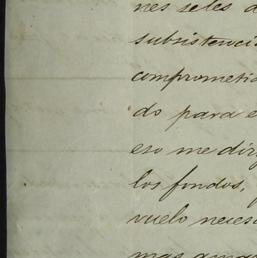 nes seles
subsistenci
comprometi
do para e
eso me diri
los fondos,
vuelo neces
mas